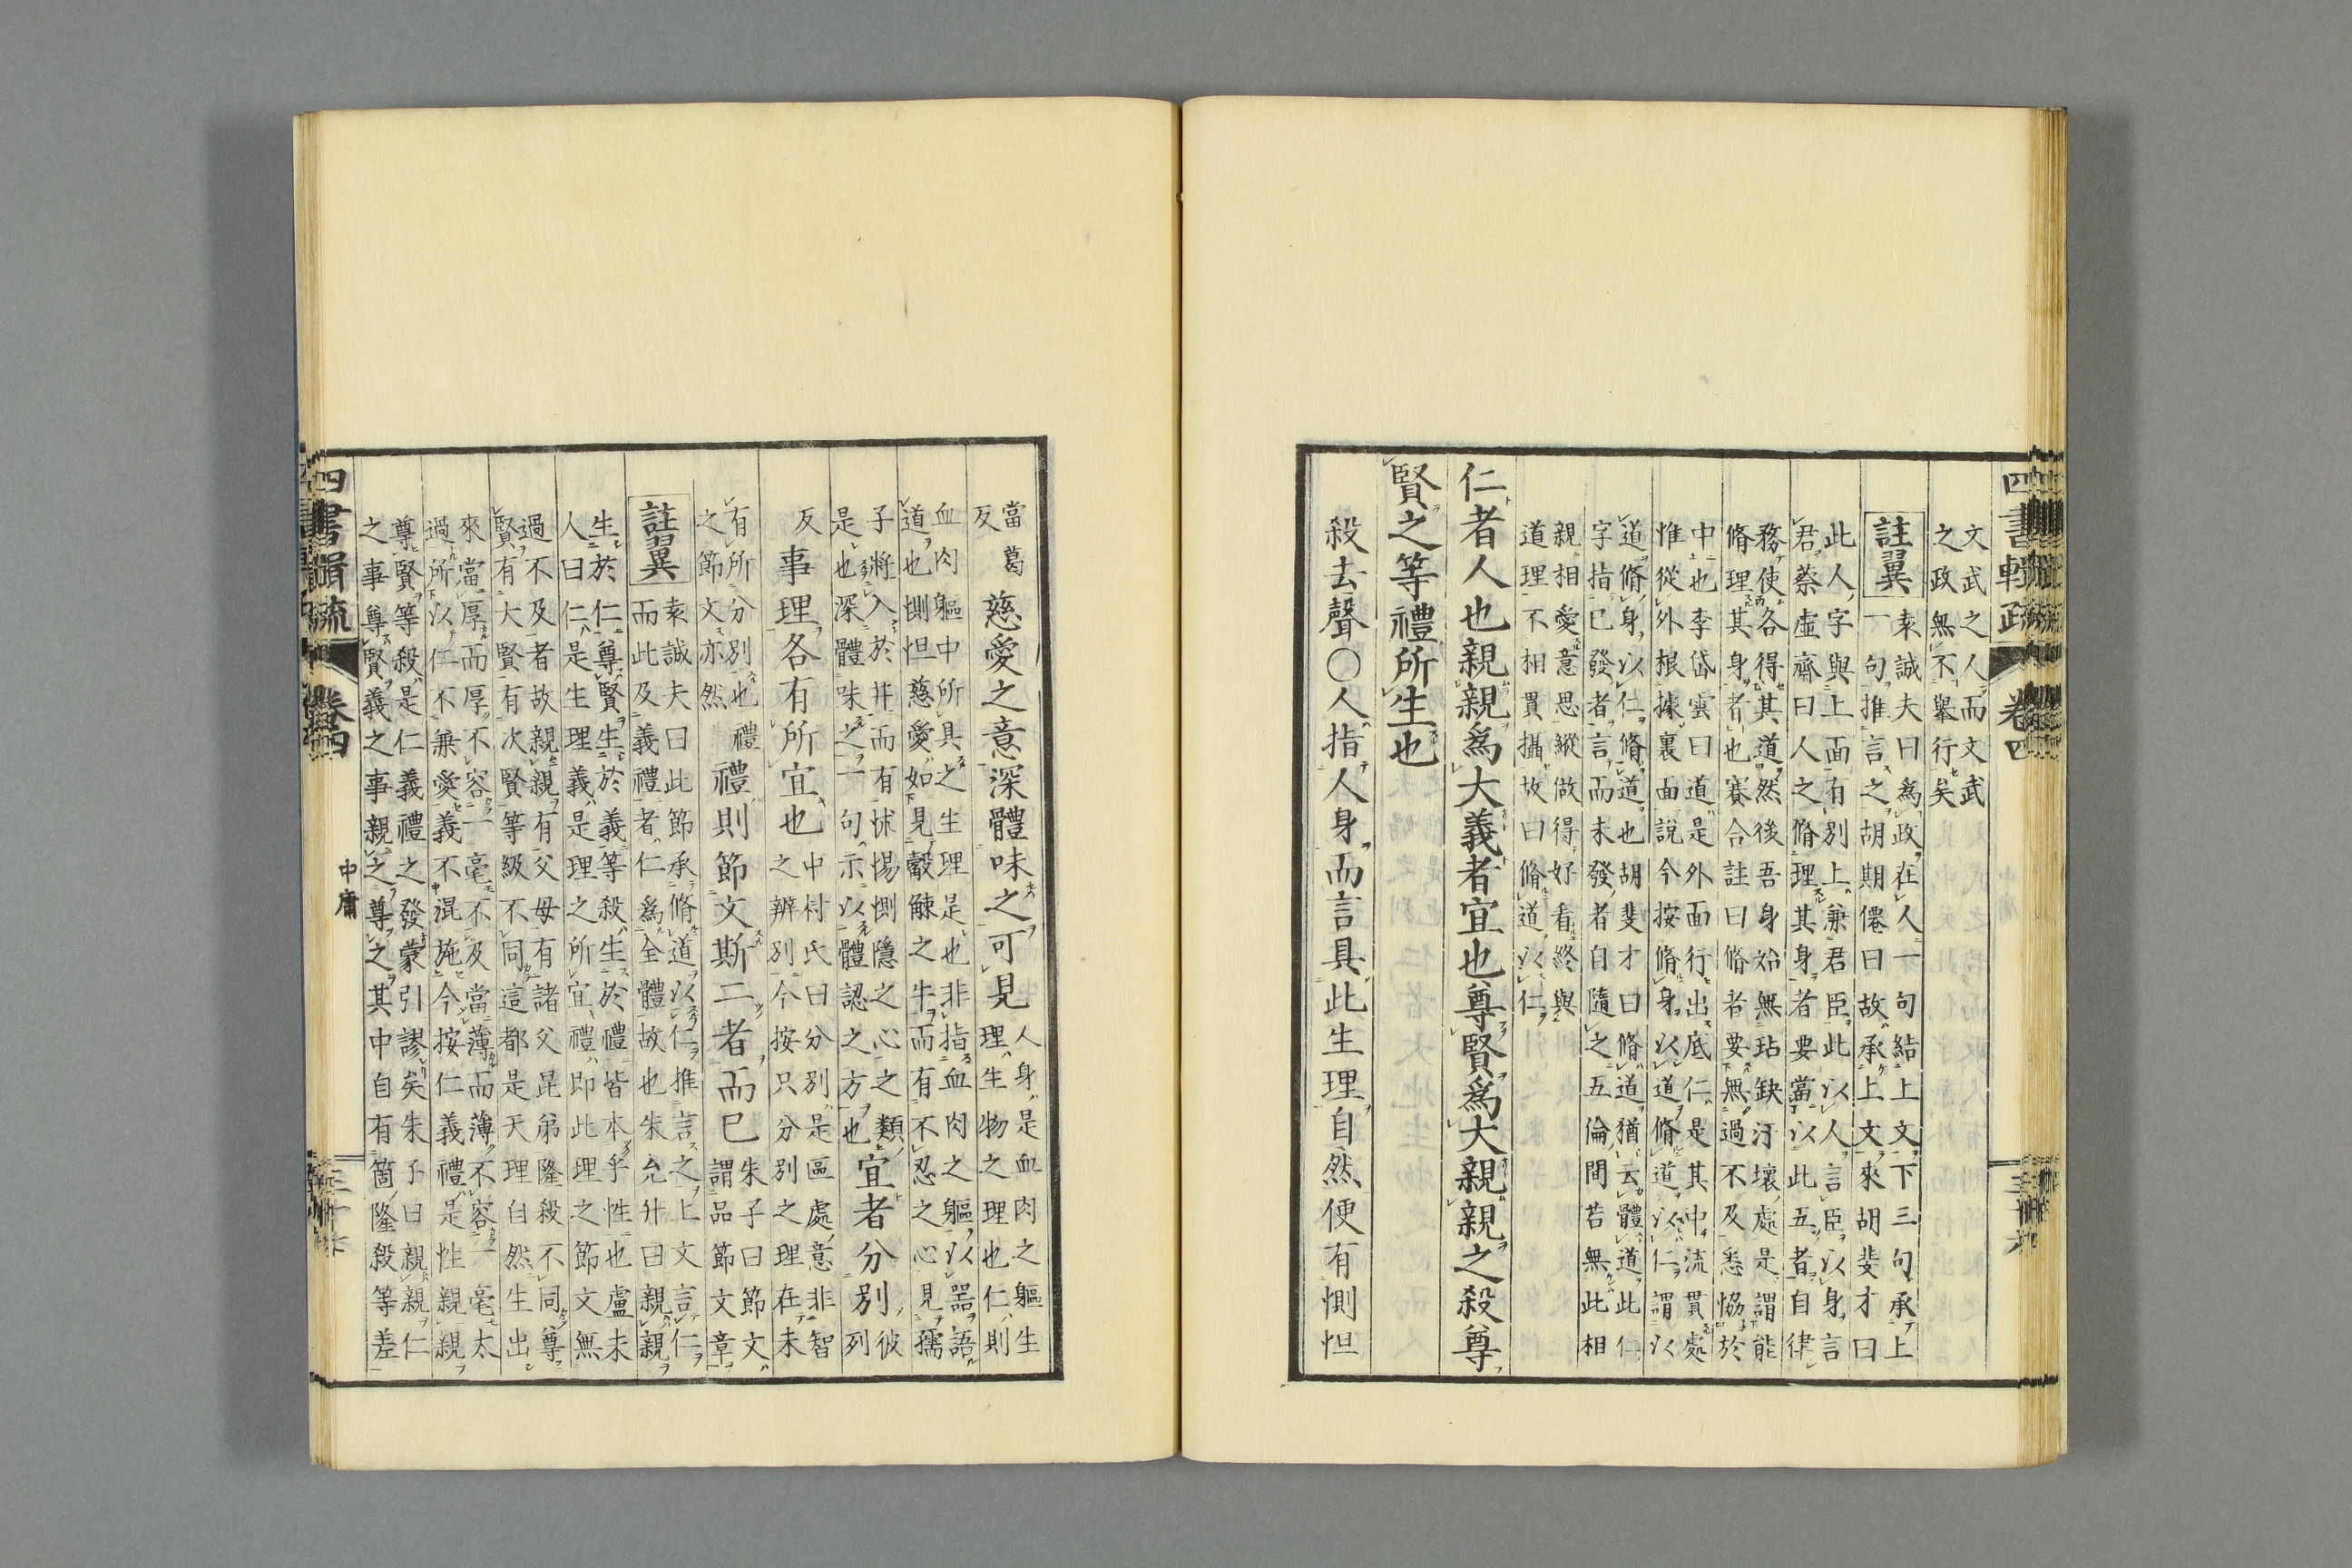 四書輯疏
卷四
文武之人而文武
之政無不舉行矣
註翼
袁誠夫曰爲政在人一句結上文下三句承上
一句推言之胡期僊曰故承上文來胡斐才曰
此人字與上面有別上兼君臣此以人言臣以身言
君蔡虛齋曰人之脩理其身者要當以此五者自律
務使各得其道然後吾身始無玷缺汙壞處是謂能
脩理其身者也賽合註曰脩者要無過不及悉恊於
中也李岱雲曰道是外面行出底仁是其中流貫處
惟從外根據裏面說今按脩身以道脩道以仁謂以
道脩身以仁脩道也胡斐才曰脩道猶云體道此仁
字指已發者言而未發者自隨之五倫間苔無此相
親相愛意思縱做得好看終與
道理不相貫攝故曰脩道以仁
仁者人也親親爲大義者宜也尊賢爲大親親之殺尊
賢之等禮所生也
殺去聲〇人指人身而言具此生理自然便有惻怛
當葛
反
慈愛之意深體味之可見
人身是血肉之軀生
理生物之理也仁則
血肉軀中所具之生理是也非指血肉之軀以器語
道也惻怛慈愛如見觳觫之牛而有不忍之心見孺
子將入於井而有怵惕惻隱之心之類
是也深體味之一句示以體認之方也
宜者分別
彼
列
反
事理各有所宜也
中村氏曰分別是區處意非智
之辨別今按只分別之理在未
有所分別也禮
之節文亦然
禮則節文斯二者而已
朱子曰節文
謂品節文章
註翼
袁誠夫曰此節承脩道以仁推言之上文言仁
而此及義禮者仁爲全體故也朱允升曰親親
生於仁尊賢生於義等殺生於禮皆本乎性也盧未
人曰仁是生理義是理之所宜禮即此理之節文無
過不及者故親親有父母有諸父昆弟隆殺不同尊
賢有大賢有次賢等級不同這都是天理自然生出
來當厚而厚不容一毫不及當薄而薄不容一毫太
過所以仁不兼愛義不混施今按仁義禮是性親親
尊賢等殺是仁義禮之發蒙引謬矣朱子曰親親仁
之事尊賢義之事親之尊之其中自有箇隆殺等差
四書輯疏
卷四
中庸